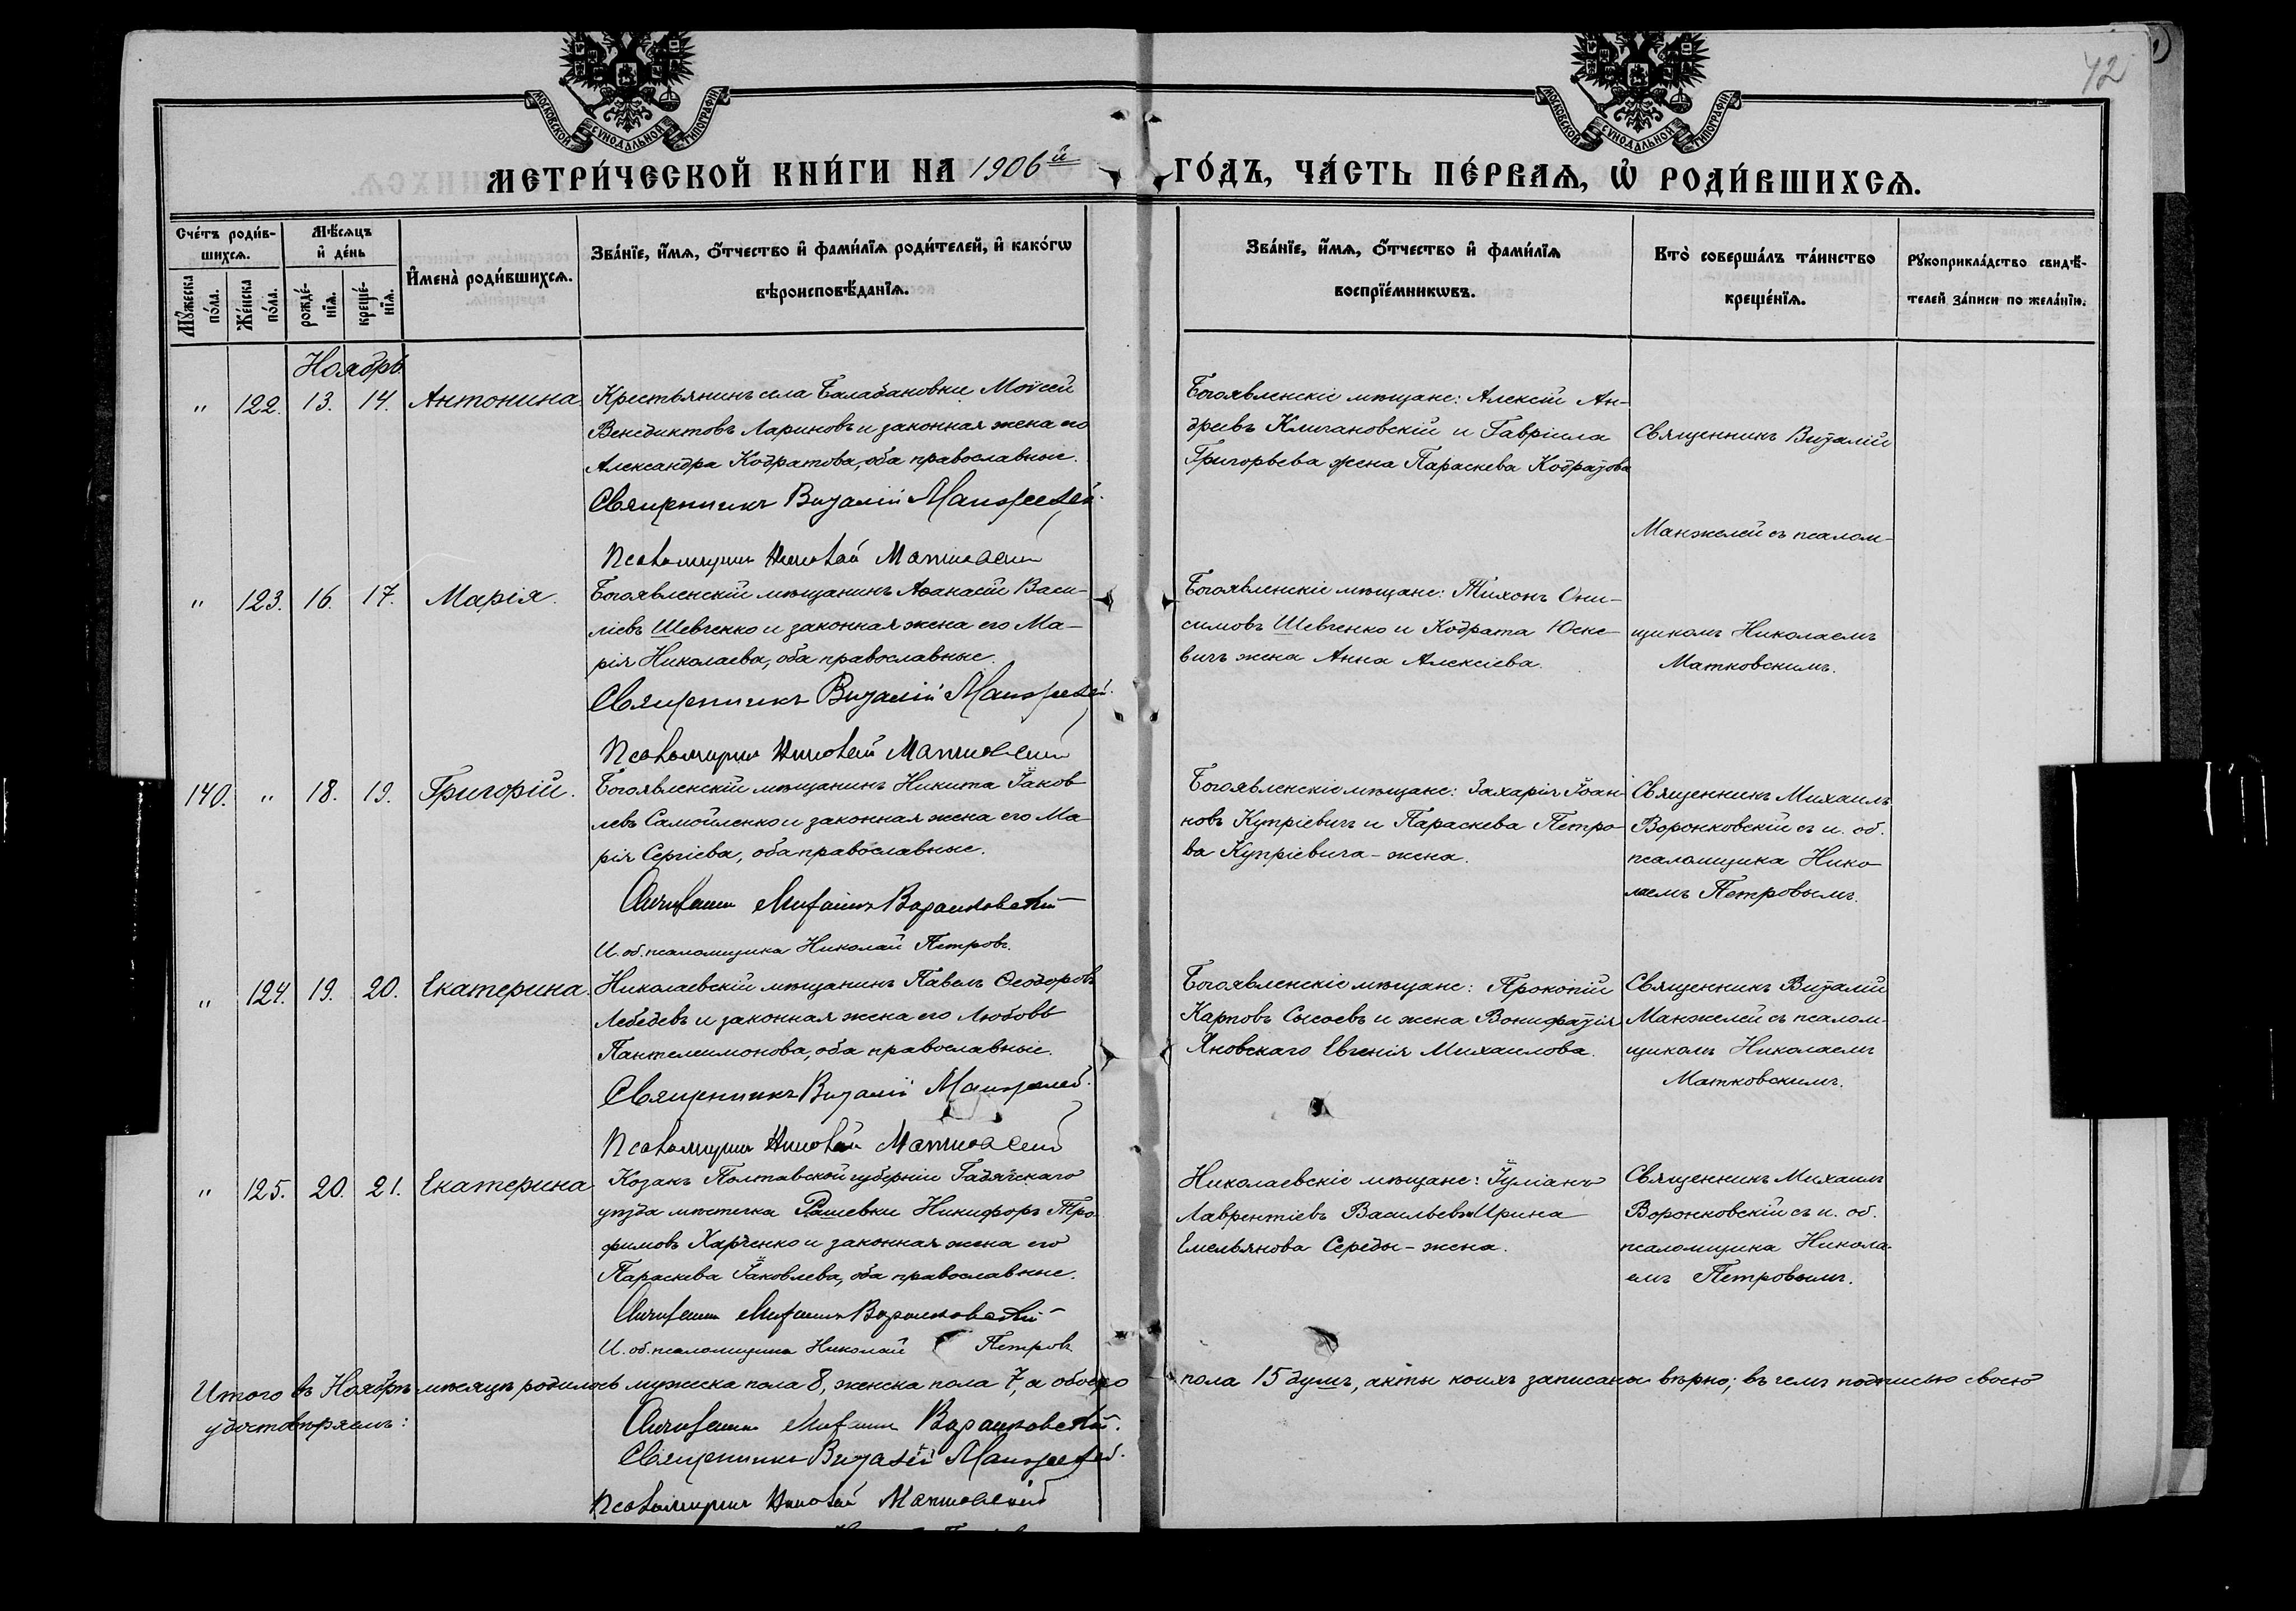 42
МОСКОВСКОЙ СѴНОДАЛЬНОЙ ТИПОГРАФІИ
МОСКОВСКОЙ СѴНОДАЛЬНОЙ ТИПОГРАФІИ
МЕТРИ́ЧЕСКОЙ КНИ́ГИ НА 1906й ГО́ДЪ, ЧА́СТЬ ПЕ́РВАѦ, Ѡ҆ РОДИ́ВШИХСѦ.
Сче́тъ роди́в-
шихсѧ.
Мꙋ́жеска по́ла.
Же́нска по́ла.
Мѣ́сѧцъ
и҆ де́нь
рожде́-
нїѧ.
креще́-
нїѧ.
И҆мена̀ роди́вшихсѧ.
Зва́нїе, и҆́мѧ, ѻ҆́тчество и҆ фами́лїѧ роди́телей, и҆ како́гѡ
вѣроисповѣ́данїѧ.
Зва́нїе, и҆́мѧ, ѻ҆́тчество и҆ фами́лїѧ
воспрїе́мникѡвъ.
Кто̀ соверша́лъ та́инство
креще́нїѧ.
Рꙋкоприкла́дство свидѣ́-
телей за́писи по жела́нїю.
Ноябрь
" 122. 13. 14. Антонина.
Крестьянинъ села Балабановки Моѵсей
Венедиктовъ Лариновъ и законная жена его
Александра Кодратова, оба православные.
Священникъ Виталій Манжелей.
Псаломщикъ Николай Матковскій
Богоявленскіе мѣщане: Алексій Ан-
дреевъ Кличановскій и Гавріила
Григорьева жена Параскева Кодратова
Священникъ Виталій
Манжелей съ псалом-
щикомъ Николаемъ
Матковскимъ.
" 123. 16. 17. Марія.
Богоявленскій мѣщанинъ Аѳанасій Васи-
ліевъ Шевченко и законная жена его Ма-
рія Николаева, оба православные.
Священникъ Виталій Манжелей.
Псаломщикъ Николай Матковскій
Богоявленскіе мѣщане: Тихонъ Они-
симовъ Шевченко и Кодрата Юске-
вичъ жена Анна Алексіева.
140. " 18. 19. Григорій.
Богоявленскій мѣщанинъ Никита Іаков
левъ Самойленко и законная жена его Ма-
рія Сергіева, оба православные.
Священникъ Михаилъ Воронковскій
И. об. псаломщика Николай Петровъ.
Богоявленскіе мѣщане: Захарія Іоан
новъ Купріевичъ и Параскева Петро-
ва Купріевича - жена.
Священникъ Михаилъ
Воронковскій съ и. об.
псаломщика Нико-
лаемъ Петровымъ.
" 124. 19. 20. Екатерина.
Николаевскій мѣщанинъ Павелъ Ѳеодоровъ
Лебедевъ и законная жена его Любовь
Пантелеимонова, оба православные.
Священникъ Виталій Манжелей.
Псаломщикъ Николай Матковскій
Богоявленскіе мѣщане: Прокопій
Карповъ Сысоевъ и жена Вонифатія
Яновскаго Евгенія Михаилова.
Священникъ Виталій
Манжелей съ псалом-
щикомъ Николаемъ
Матковскимъ.
" 125. 20. 21. Екатерина
Козакъ Полтавской губерніи Гадячскаго
уѣзда мѣстечка Рашевки Никифоръ Тро-
фимовъ Харченко и законная жена его
Параскева Іаковлева, оба православные.
Священникъ Михаилъ Воронковскій
И. об. псаломщика Николай Петровъ
Николаевскіе мѣщане: Іуліанъ
Лаврентіевъ Васильевъ и Ирина
Емельянова Середы - жена.
Священникъ Михаилъ
Воронковскій съ и. об.
псаломщика Никола-
емъ Петровымъ.
Итого въ Ноябрѣ мѣсяцѣ родилось мужеска пола 8, женска пола 7, а обоего пола 15 душъ, акты коихъ записаны вѣрно; въ чемъ подписью своею
удостовѣряемъ:
Священникъ Михаилъ Воронковскій.
Священникъ Виталій Манжелей.
Псаломщикъ Николай Матковскій